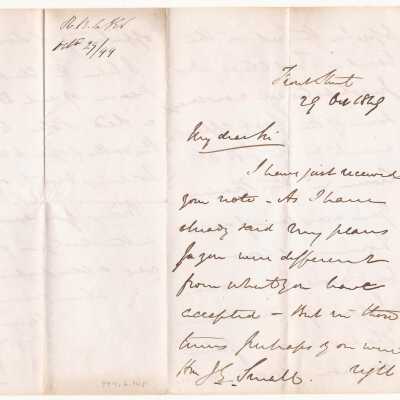 Octr 29/49
Front Street
29 Oct 1849
My dear Sir
I have just received
your note - As I have
already said my plans
for you were different
from what you have
accepted - But in these
times perhaps you were
Hon J. E. Small. right